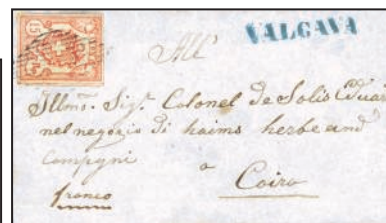 15
VALCAVA
All'
Illmo. Sigr. Colonel de Solis
nel negozio di haims herbe and
Compgni
a
Coira
franco